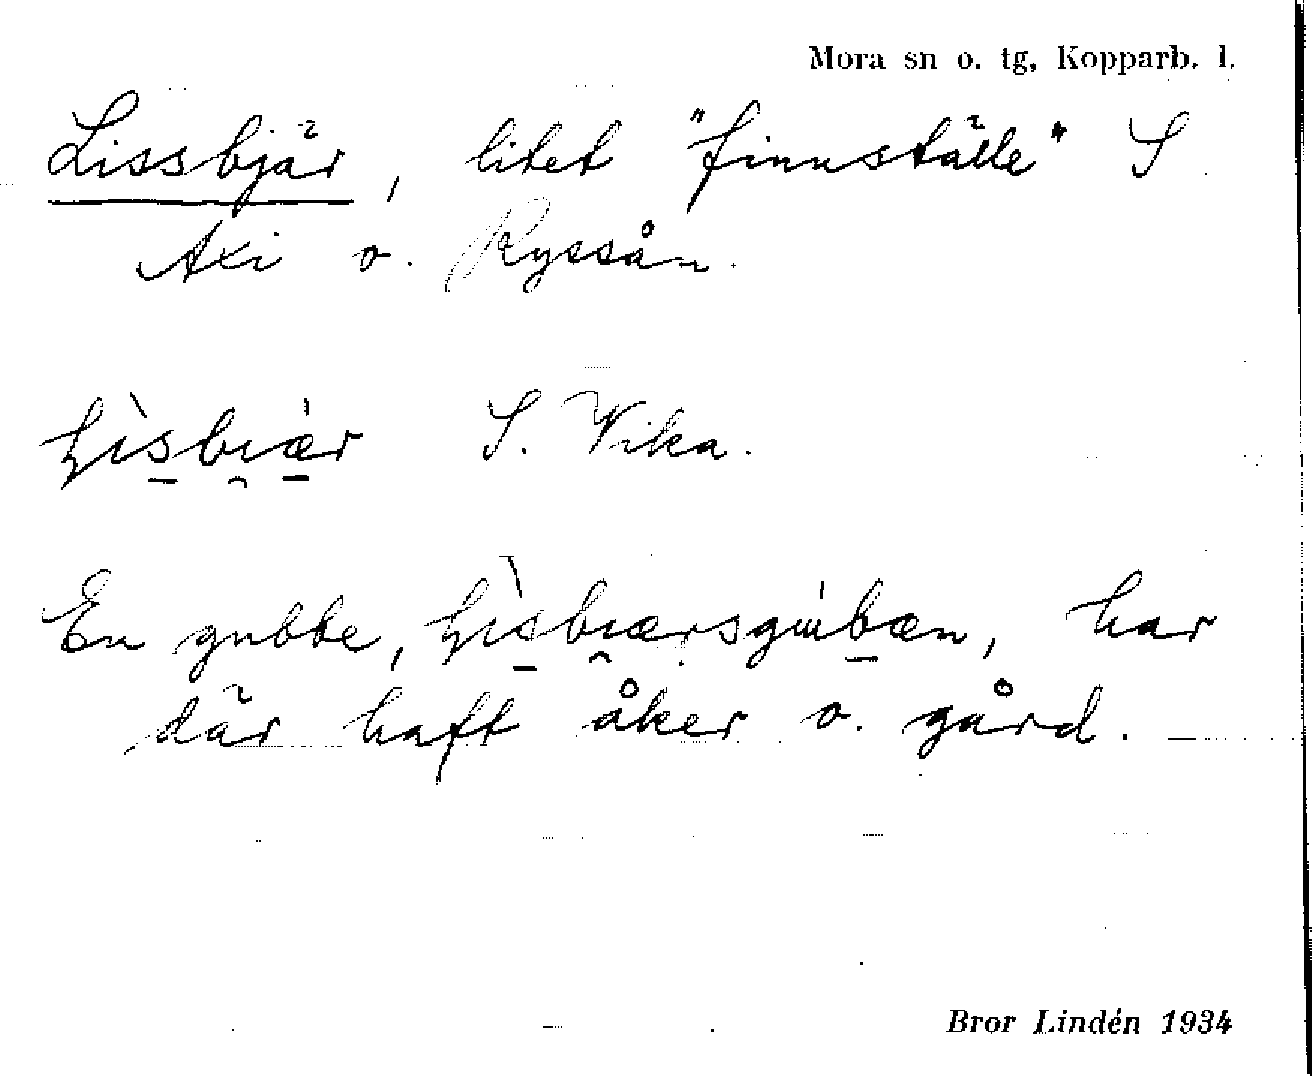 Mora sn o. tg, Kopparb. l.
Lissbjär, litet "finnställe" S
Axi o. Ryssån.
lìsbiær S. Vika.
En gubbe, lìsbiærsgúbæn, har
där haft åker o. gård.
Bror Lindén 1934